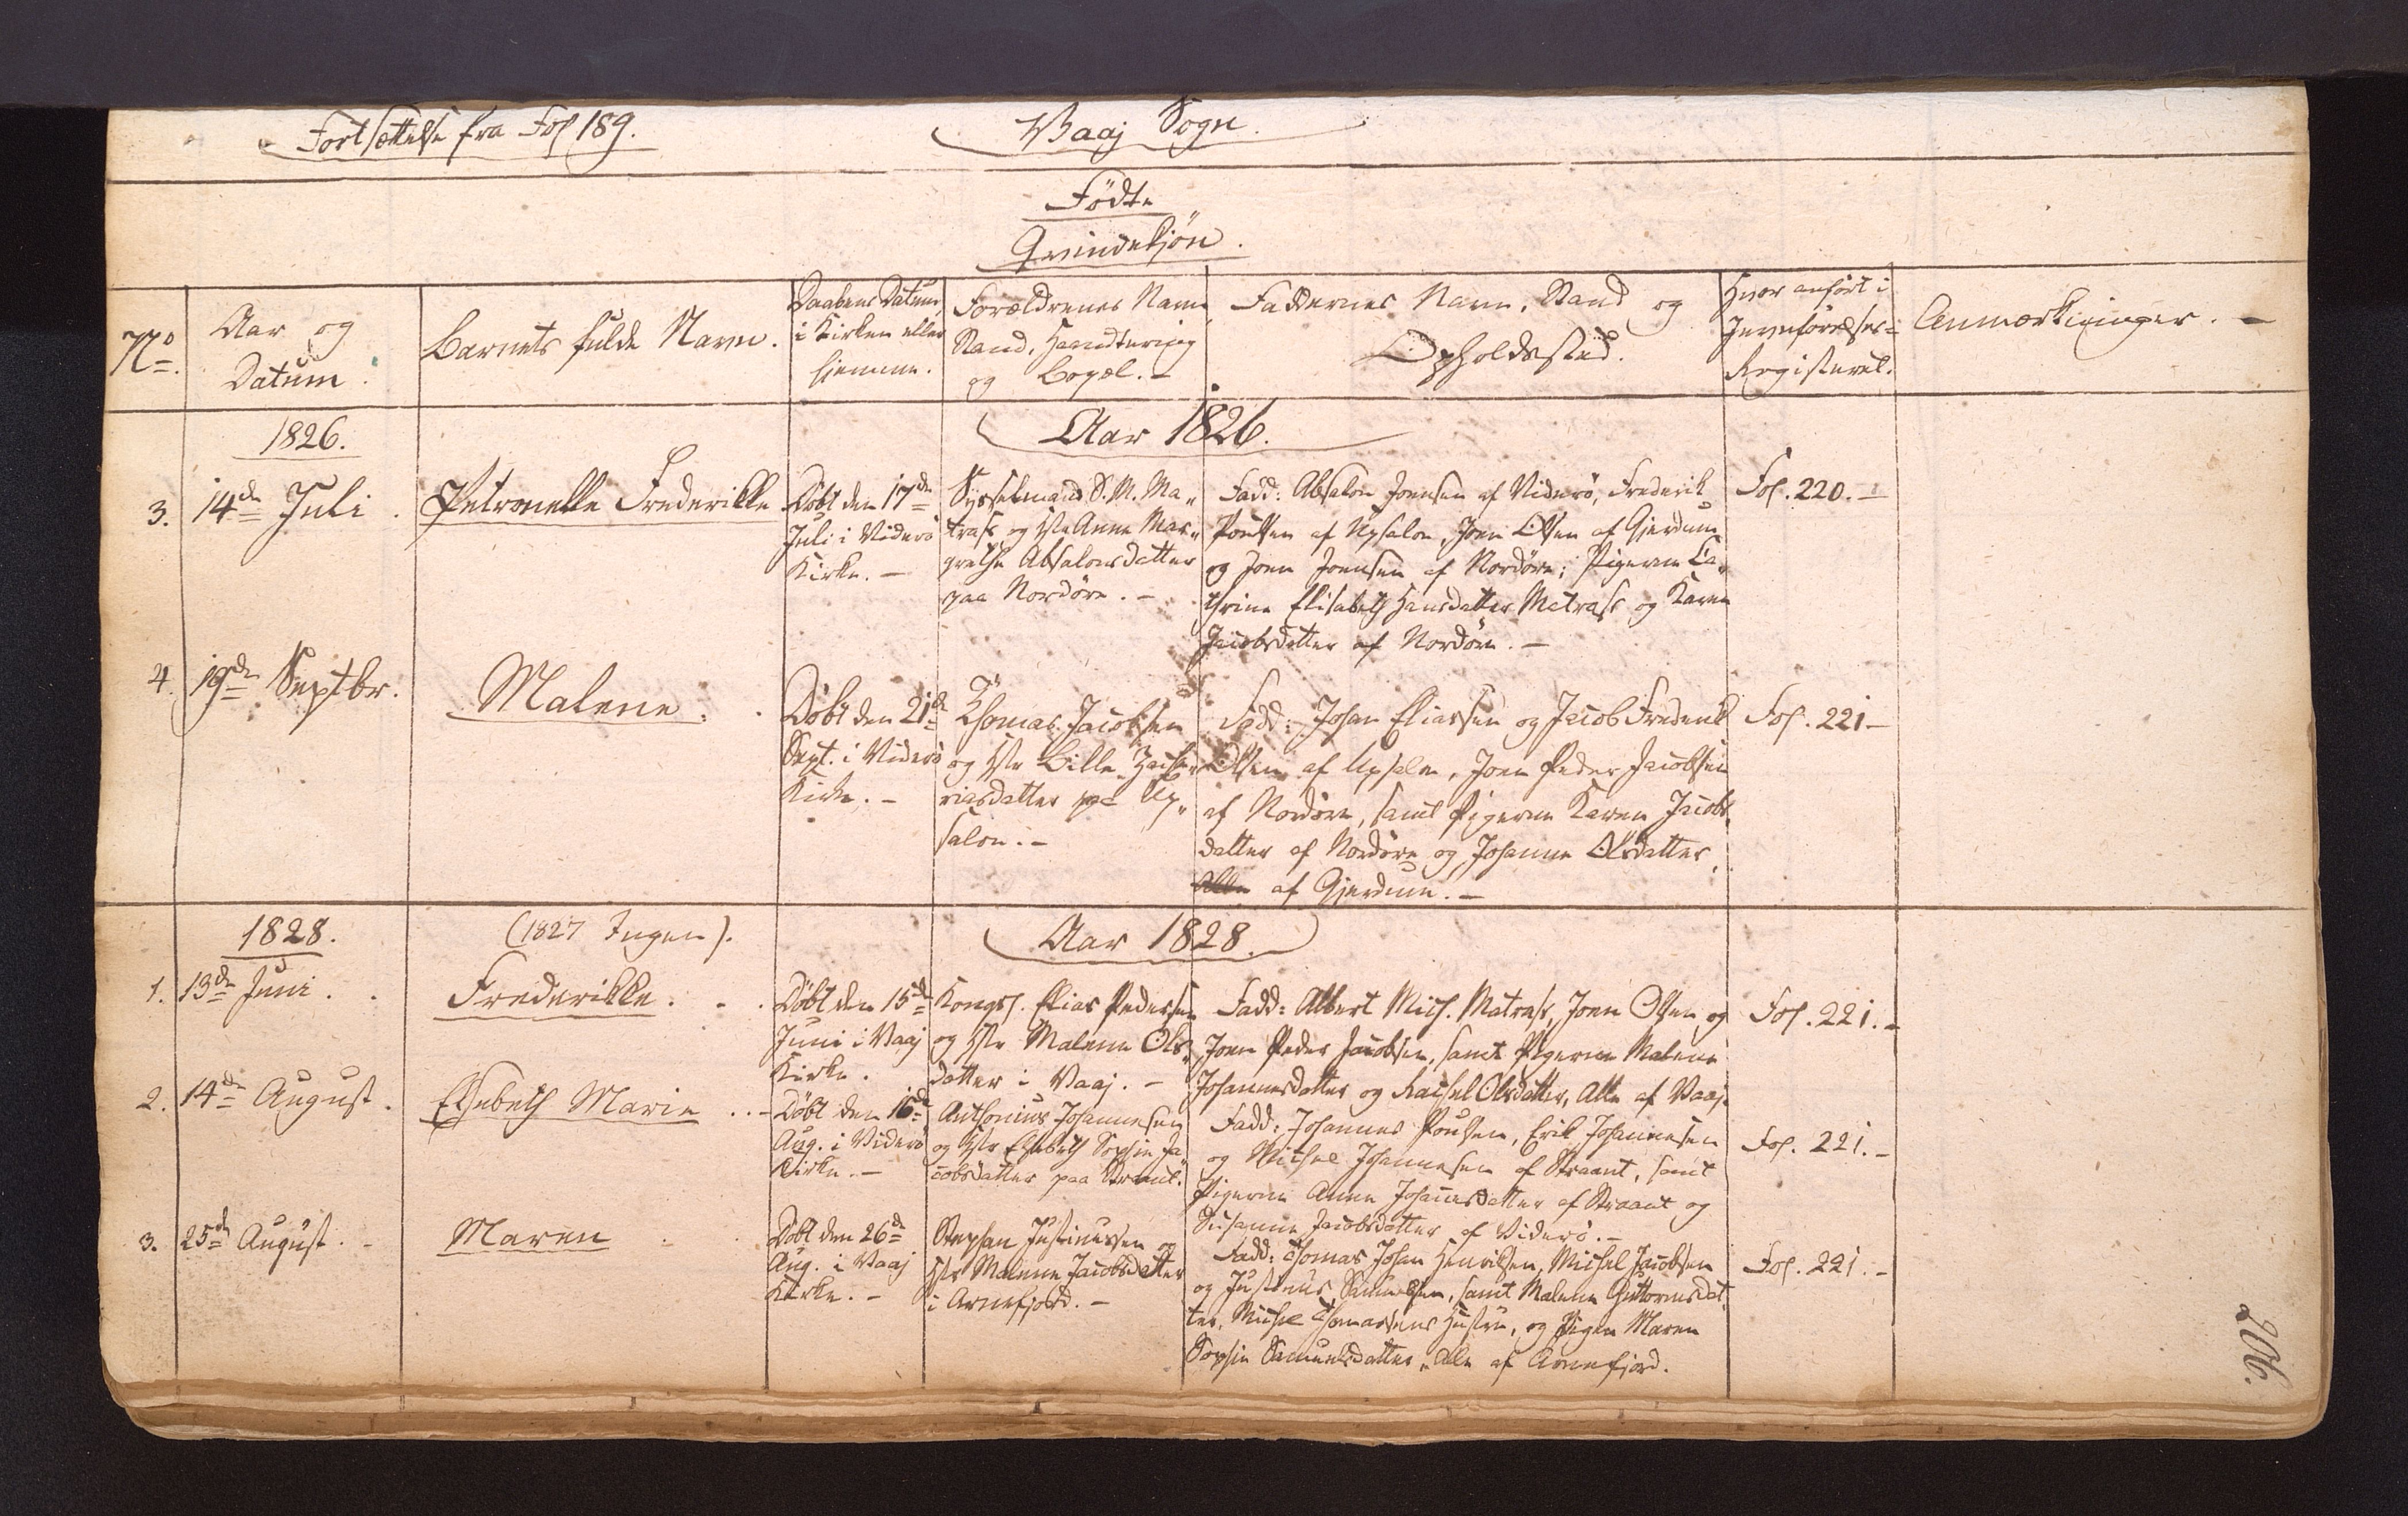 Fortsættelse fra Fol 189.
Vaaj Sogn.
Födte
Qvindekjön.
No.
Aar og
Datum.
Barnets fulde Navn.
Daabens Datum,
i Kirken eller
hjemme.
Forældrenes Navn
Stand, Haandtering
og Bopæl. -
Faddernes Navn, Stand og
Opholdssted.
Hvor anfört i
Jevnförelses-
Registeret.
Anmærkninger. -
1826.
Aar 1826.
3.
14de Juli.
Petronelle Frederikke
Döbt den 17de
Juli i Viderö
Kirke. -
Sysselmand S. M. Ma„
tras og Hstr Anne Mar„
grethe Absalonsdatter
paa Nordöre. -
Fadd: Absalon Joensen af Viderö, Frederik
Poulsen af Upsalon, Joen Olsen af Gjerdum
og Joen Joensen af Nordöre; Pigerne Ca„
thrine Elisabeth Hansdatter Matras og Karen
Jacobsdatter af Nordöre. -
Fol. 220. -
4.
19de Septbr.
Malene.
Döbt den 21de
Sept. i Viderö
Kirke. -
Thomas Jacobsen
og Hstr Bille Zacha„
riasdatter paa Up„
salon. -
Fadd: Johan Eliassen og Jacob Frederik
Olsen af Upsalon, Joen Peder Jacobsen
af Nordöre, samt Pigerne Karen Jacobs„
datter af Nordöre og Johanne Olsdatter,
Alle af Gjerdum. -
Fol. 221 -
1828.
(1827 Ingen).
Aar 1828.
1.
13de Juni.
Frederikke.
Döbt den 15de
Juni i Vaaj
Kirke.
Kongsf. Elias Pedersen
og Hstr Malene Ols„
datter i Vaaj. -
Fadd: Albert Mich. Matras, Joen Olsen og
Joen Peder Jacobsen, samt Pigerne Malene
Johannesdatter og Rachel Olsdatter, Alle af Vaaj.
Fol. 221. -
2.
14de August.
Elsebeth Marie
Döbt den 16de
Aug. i Viderö
Kirke. -
Anthonius Johannesen
og Hstr Elsebeth Sophie Ja„
cobsdatter paa Straant.
Fadd: Johannes Poulsen, Erik Johannesen
og Michel Johannesen af Straant, samt
Pigerne Anne Johannesdatter af Straant og
Susanne Jacobsdatter af Viderö. -
Fol. 221. -
3.
25de August. -
Maren
Döbt den 26de
Aug. i Vaaj
Kirke. -
Stephan Justinussen og
Hstr Malene Jacobsdatter
i Arnefjord. -
Fadd: Thomas Johan Henriksen, Michel Jacobsen
og Justinus Samuelsen, samt Malene Guttormsdat„
ter, Michel Thomassens Hustru, og Pigen Maren
Sophie Samuelsdatter, Alle af Arnefjord.
Fol. 221. -
206.